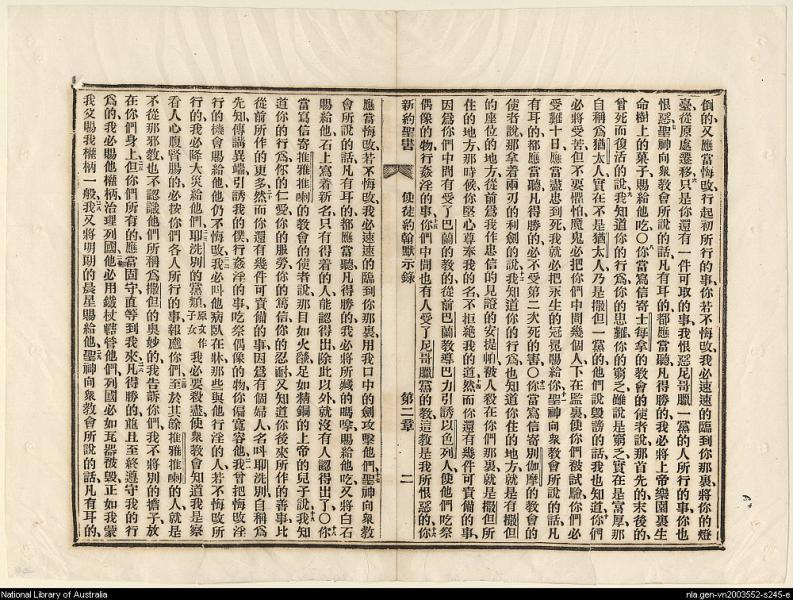 倒的、又應當悔改、行起初所行的事、你若不悔改、我必速速的臨到你那裏、將你的燈
臺從原處遷移、只是你還有一件可取的事、我恨惡尼哥臘一黨的人所行的事、你也
恨惡、聖神向衆教會所說的話、凡有耳的、都應當聽、凡得勝的、我必將上帝樂園裏生
命樹上的菓子、賜給他吃、〇你當寫信寄士每拿的教會的使者說、那首先的、末後的、
曾死而復活的說、我知道你的行爲、你的患難、你的窮乏、雖說是窮乏、實在是富厚、那
自稱爲猶太人、實在不是猶太人、乃是撒但一黨的、他們說毀謗的話、我也知道、你們
必將受苦、但不要懼怕、魔鬼必把你們中間幾個人、下在監裏、使你們被試驗、你們必
受難十日、應當盡忠到死、我就必把永生的冠冕賜給你、聖神向衆教會所說的話、凡
有耳的、都應當聽、凡得勝的、必不受第二次死的害、〇你當寫信寄別伽摩的教會的
使者說、那拿着兩刃的利劍的說、我知道你的行爲、也知道你住的地方、就是有撒但
的座位的地方、從前爲我作忠信的見證的安提帕、被人殺在你們那裏、就是撒但所
住的地方、那時候你堅心尊奉我的名、不拒絕我的道、然而你還有幾件可責備的事、
因爲你們中間有受了巴蘭的教的、從前巴蘭教導巴力引誘以色列人、使他們吃祭
偶像的物、行姦淫的事、你們中間也有人受了尼哥臘黨的教、這教是我所恨惡的、你
新約聖書 使徒約翰默示錄 第二章 二
應當悔改、若不悔改、我必速速的臨到你那裏、用我口中的劍攻擊他們、聖神向衆教
會所說的話、凡有耳的、都應當聽、凡得勝的、我必將所藏的嗎嗱賜給他吃、又將白石
賜給他、石上寫着新名、只有得着的人能認得出、除此以外、就沒有人認得出了、〇你
當寫信寄推雅推喇的教會的使者說、那目如火燄、足如精銅的上帝的兒子說、我知
道你的行爲、你的仁愛、你的服勞、你的篤信、你的忍耐、又知道你後來所作的善事、比
從前所作的更多、然而你還有幾件可責備的事、因爲有個婦人、名叫耶洗別、自稱爲
先知、傳講異端、引誘我的僕、行姦淫的事、吃祭偶像的物、你偏寬容他、我曾把悔改淫
行的機會賜給他、他仍不悔改、我必叫他病臥在牀、那些與他行淫的人、若不悔改所
行的、我必降大災給他們、耶洗別的黨類、原文作子女我必要殺盡、使衆教會知道我是察
看人心腹腎腸的、必按你們各人所行的事報應你們、至於其餘推雅推喇的人、就是
不從那邪教、也不認識他們所稱爲撒但的奧妙的、我告訴你們、我不將別的擔子放
在你們身上、但你們所有的、應當固守、直等到我來、凡得勝的、並且至終遵守我的行
爲的、我必賜他權柄、治理列國、他必用鐵杖轄管他們、列國必如瓦器被毀、正如我蒙
我父賜我權柄一般、我又將明朗的晨星賜給他、聖神向衆教會所說的話、凡有耳的、
National Library of Australia
nla.gen-vn2003552-s245-e